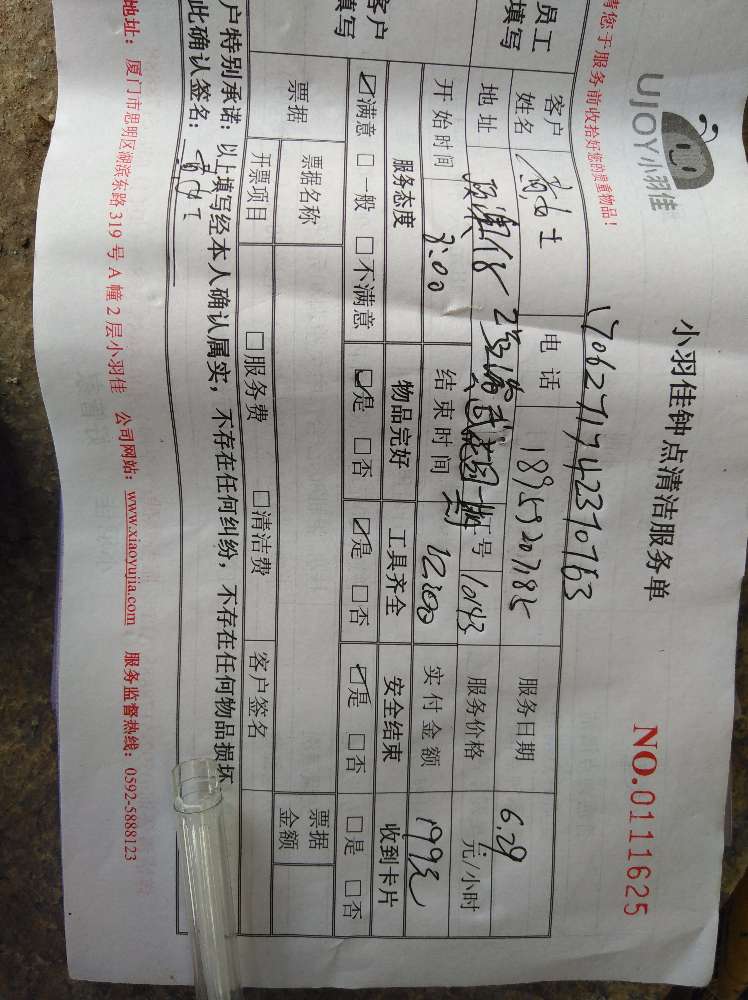 UJOY小羽佳
小羽佳钟点清洁服务单
NO.0111625
请您于服务前收拾好您的贵重物品！
1706271742370763
员工
填写
客户
姓名
黄女士
电话
18959207185
服务日期
6.29
地址
号
10143
服务价格
元/小时
开始时间
8:00
结束时间
12:00
实付金额
199元
客户
填写
服务态度
物品完好
工具齐全
安全结束
收到卡片
☑满意 □一般 □不满意
☑是 □否
☑是 □否
☑是 □否
□是 □否
票据
票据名称
票据
金额
开票项目
□服务费
□清洁费
客户签名
户特别承诺：以上填写经本人确认属实，不存在任何纠纷，不存在任何物品损坏
此确认签名：
地址：厦门市思明区湖滨东路319号A幢2层小羽佳 公司网站：www.xiaoyujia.com 服务监督热线：0592-5888123